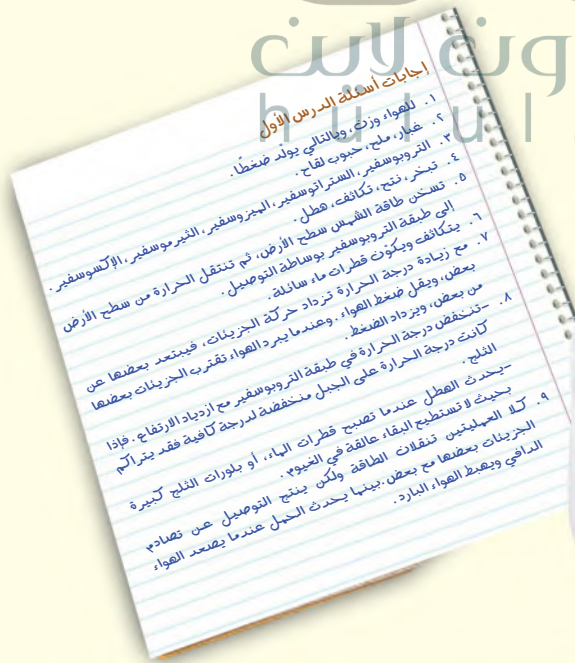 ون لاين
hulul
إجابات أسئلة الدرس الأول
١. للهواء وزن، وبالتالي يولّد ضغطًا.
٢. غبار، ملح، حبوب لقاح.
٣. التروبوسفير، الستراتوسفير، الميزوسفير، الثيرموسفير، الإكسوسفير.
٤. تبخر، نتح، تكاثف، هطل.
٥. تسخن طاقة الشمس سطح الأرض، ثم تنتقل الحرارة من سطح الأرض
إلى طبقة التروبوسفير بوساطة التوصيل.
٦. يتكاثف ويكوّن قطرات ماء سائلة.
٧. مع زيادة درجة الحرارة تزداد حركة الجزيئات، فيبتعد بعضها عن
بعض، ويقل ضغط الهواء. وعندما يبرد الهواء تقترب الجزيئات بعضها
من بعض، ويزداد الضغط.
٨. -تنخفض درجة الحرارة في طبقة التروبوسفير مع ازدياد الارتفاع. فإذا
كانت درجة الحرارة على الجبل منخفضة لدرجة كافية فقد يتراكم
الثلج.
-يحدث الهطل عندما تصبح قطرات الماء، أو بلورات الثلج كبيرة
بحيث لا تستطيع البقاء عالقة في الغيوم.
٩. كلا العمليتين تنقلان الطاقة ولكن ينتج التوصيل عن تصادم
الجزيئات بعضها مع بعض. بينما يحدث الحمل عندما يصعد الهواء
الدافي ويهبط الهواء البارد.